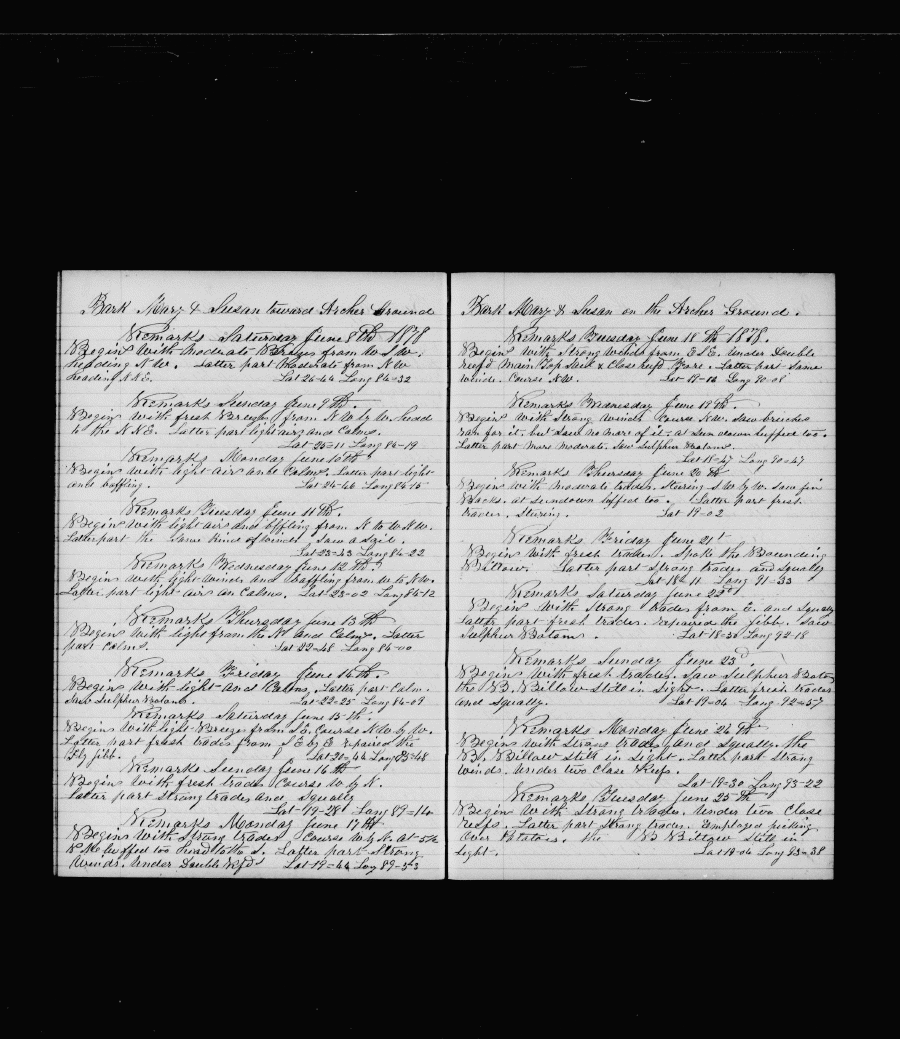 Bark Mary & Susan towards Archer Ground
Remarks Saturday June 8th 1878
Begins with moderate Breezes from W S W.
Heading N W. Latter part Moderate from N W
Heading N N E. Lat 24-44 Long 84-32
Remarks Sunday June 9th.
Begins with fresh Breezes from N W by W. head
to the N N E. Latter part light airs and Calms.
Lat 25-11 Long 84-19
Remarks Monday June 10th
Begins with light airs and Calms. Latter part light
and baffling. Lat 24-46 Long 84-15
Remarks Tuesday June 11th.
Begins with light airs and baffling from N to W N W.
Latter part the same kind of winds, Saw a Sail.
Lat 23-43 Long 84-22
Remarks Wednesday June 12th.
Begins with light winds and baffling from W to N W.
Latter part light airs an Calms. Lat 23-02 Long 84-12
Remarks Thursday June 13th
Begins with light from the N and Calms. Latter
part Calms. Lat 22-48 Long 84-00
Remarks Friday June 14th.
Begins with light and Calms, Latter part Calm.
Saw Sulphur Botom. Lat 22-25 Long 84-09
Remarks Saturday June 15th.
Begins with light Breeze from S E. Course N W by W.
Latter part fresh trades from S E by E repaired the
Fly jibb. Lat 20-44 Long 85-48
Remarks Sunday June 16th
Begins with fresh trades Course W by N.
Latter part Strong trades and Squaly
Lat 19-28 Long 87-14
Remarks Monday June 17th
Begins with Strong trades Course W by N. At 5
P M luffed too head to the S. Latter part Strong
Winds. Under Double Refs Lat 19-44 Long 89-53
Bark Mary & Susan on the Archer Ground.
Remarks Tuesday June 18th 1878.
Begins with Strong Winds from E S E. under Double
reefd Main Top Sail & Close reefd Fore. Latter part Same
winds. Course N W. Lat 19-12 Long 90-08
Remarks Wednesday June 19th.
Begins with Strong winds Course N W. Saw briches
ran for it, but Saw no more of it. At Sundown luffed too.
Latter part More Moderate. Saw Sulphur Botoms
Lat 18-47 Long 90-47
Remarks Thursday June 20th
Begins with moderate trades. Stering S W by W. Saw fin
Backs. at Sundown luffed too. Latter part fresh
trades, Stering. Lat 19-02
Remarks Friday June 21st
Begins with fresh trades. Spoke the Bounding
Billow. Latter part Strong trades and Squaly
Lat 18-11 Long 91-33
Remarks Saturday June 22nd
Begins with Strong trades from E. and Squaly
latter part fresh trades. repaired the jibb. Saw
Sulphur Botoms. Lat 18-36 Long 92-18
Remarks Sunday June 23d
Begins with fresh trades. Saw Sulphur Botoms
the B. Billow Still in Sight. Latter fresh trades
and Squally. Lat 19-04 Long 92-57
Remarks Monday June 24th
Begins with Strong trades and Squally the
B. Billow Still in Sight. Latter part Strong
winds. Under two Close Reefs.
Lat 19-30 Long 93-22
Remarks Tuesday June 25th
Begins with Strong trades. under two Close
reefs. Latter part Strong trades. Employed picking
over Potatoes. the B Billow Still in
Sight. Lat 19-04 Long 93-38